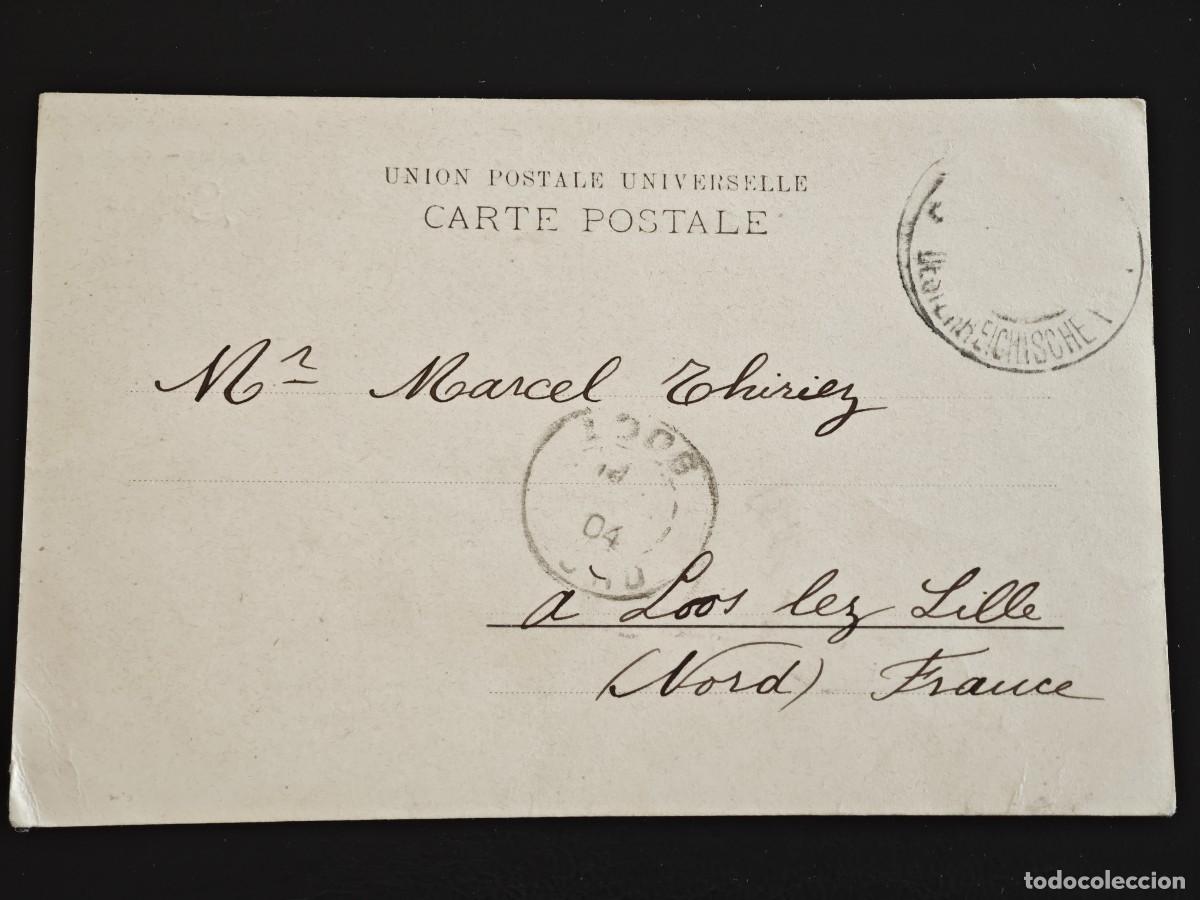 UNION POSTALE UNIVERSELLE
CARTE POSTALE
ÖSTERREICHISCHE
Mr Marcel Thiriez
LOOS
04
à Loos lez Lille
(Nord) France
todocoleccion